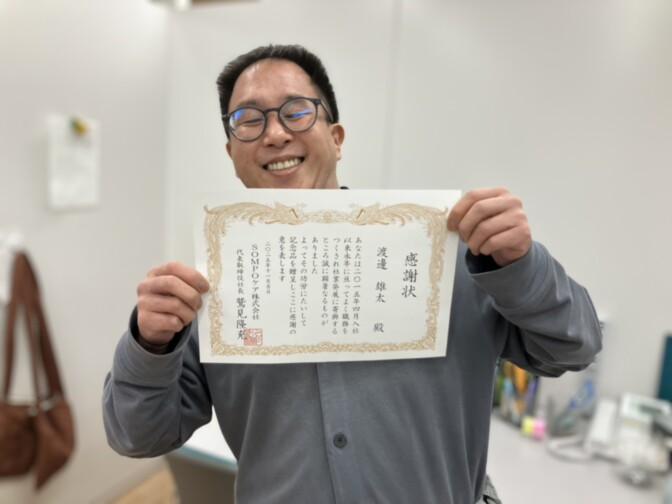 感謝状
渡邊 雄太 殿
あなたは二〇一五年四月入社
以来永年に亘ってよく職務を
つくされ社業発展に寄与する
ところ誠に顕著なるものが
ありました
よってその功労にたいして
記念品を贈呈しここに感謝の
意を表します
二〇二五年十一月吉日
SOMPOケア株式会社
代表取締役社長 鷲見隆充